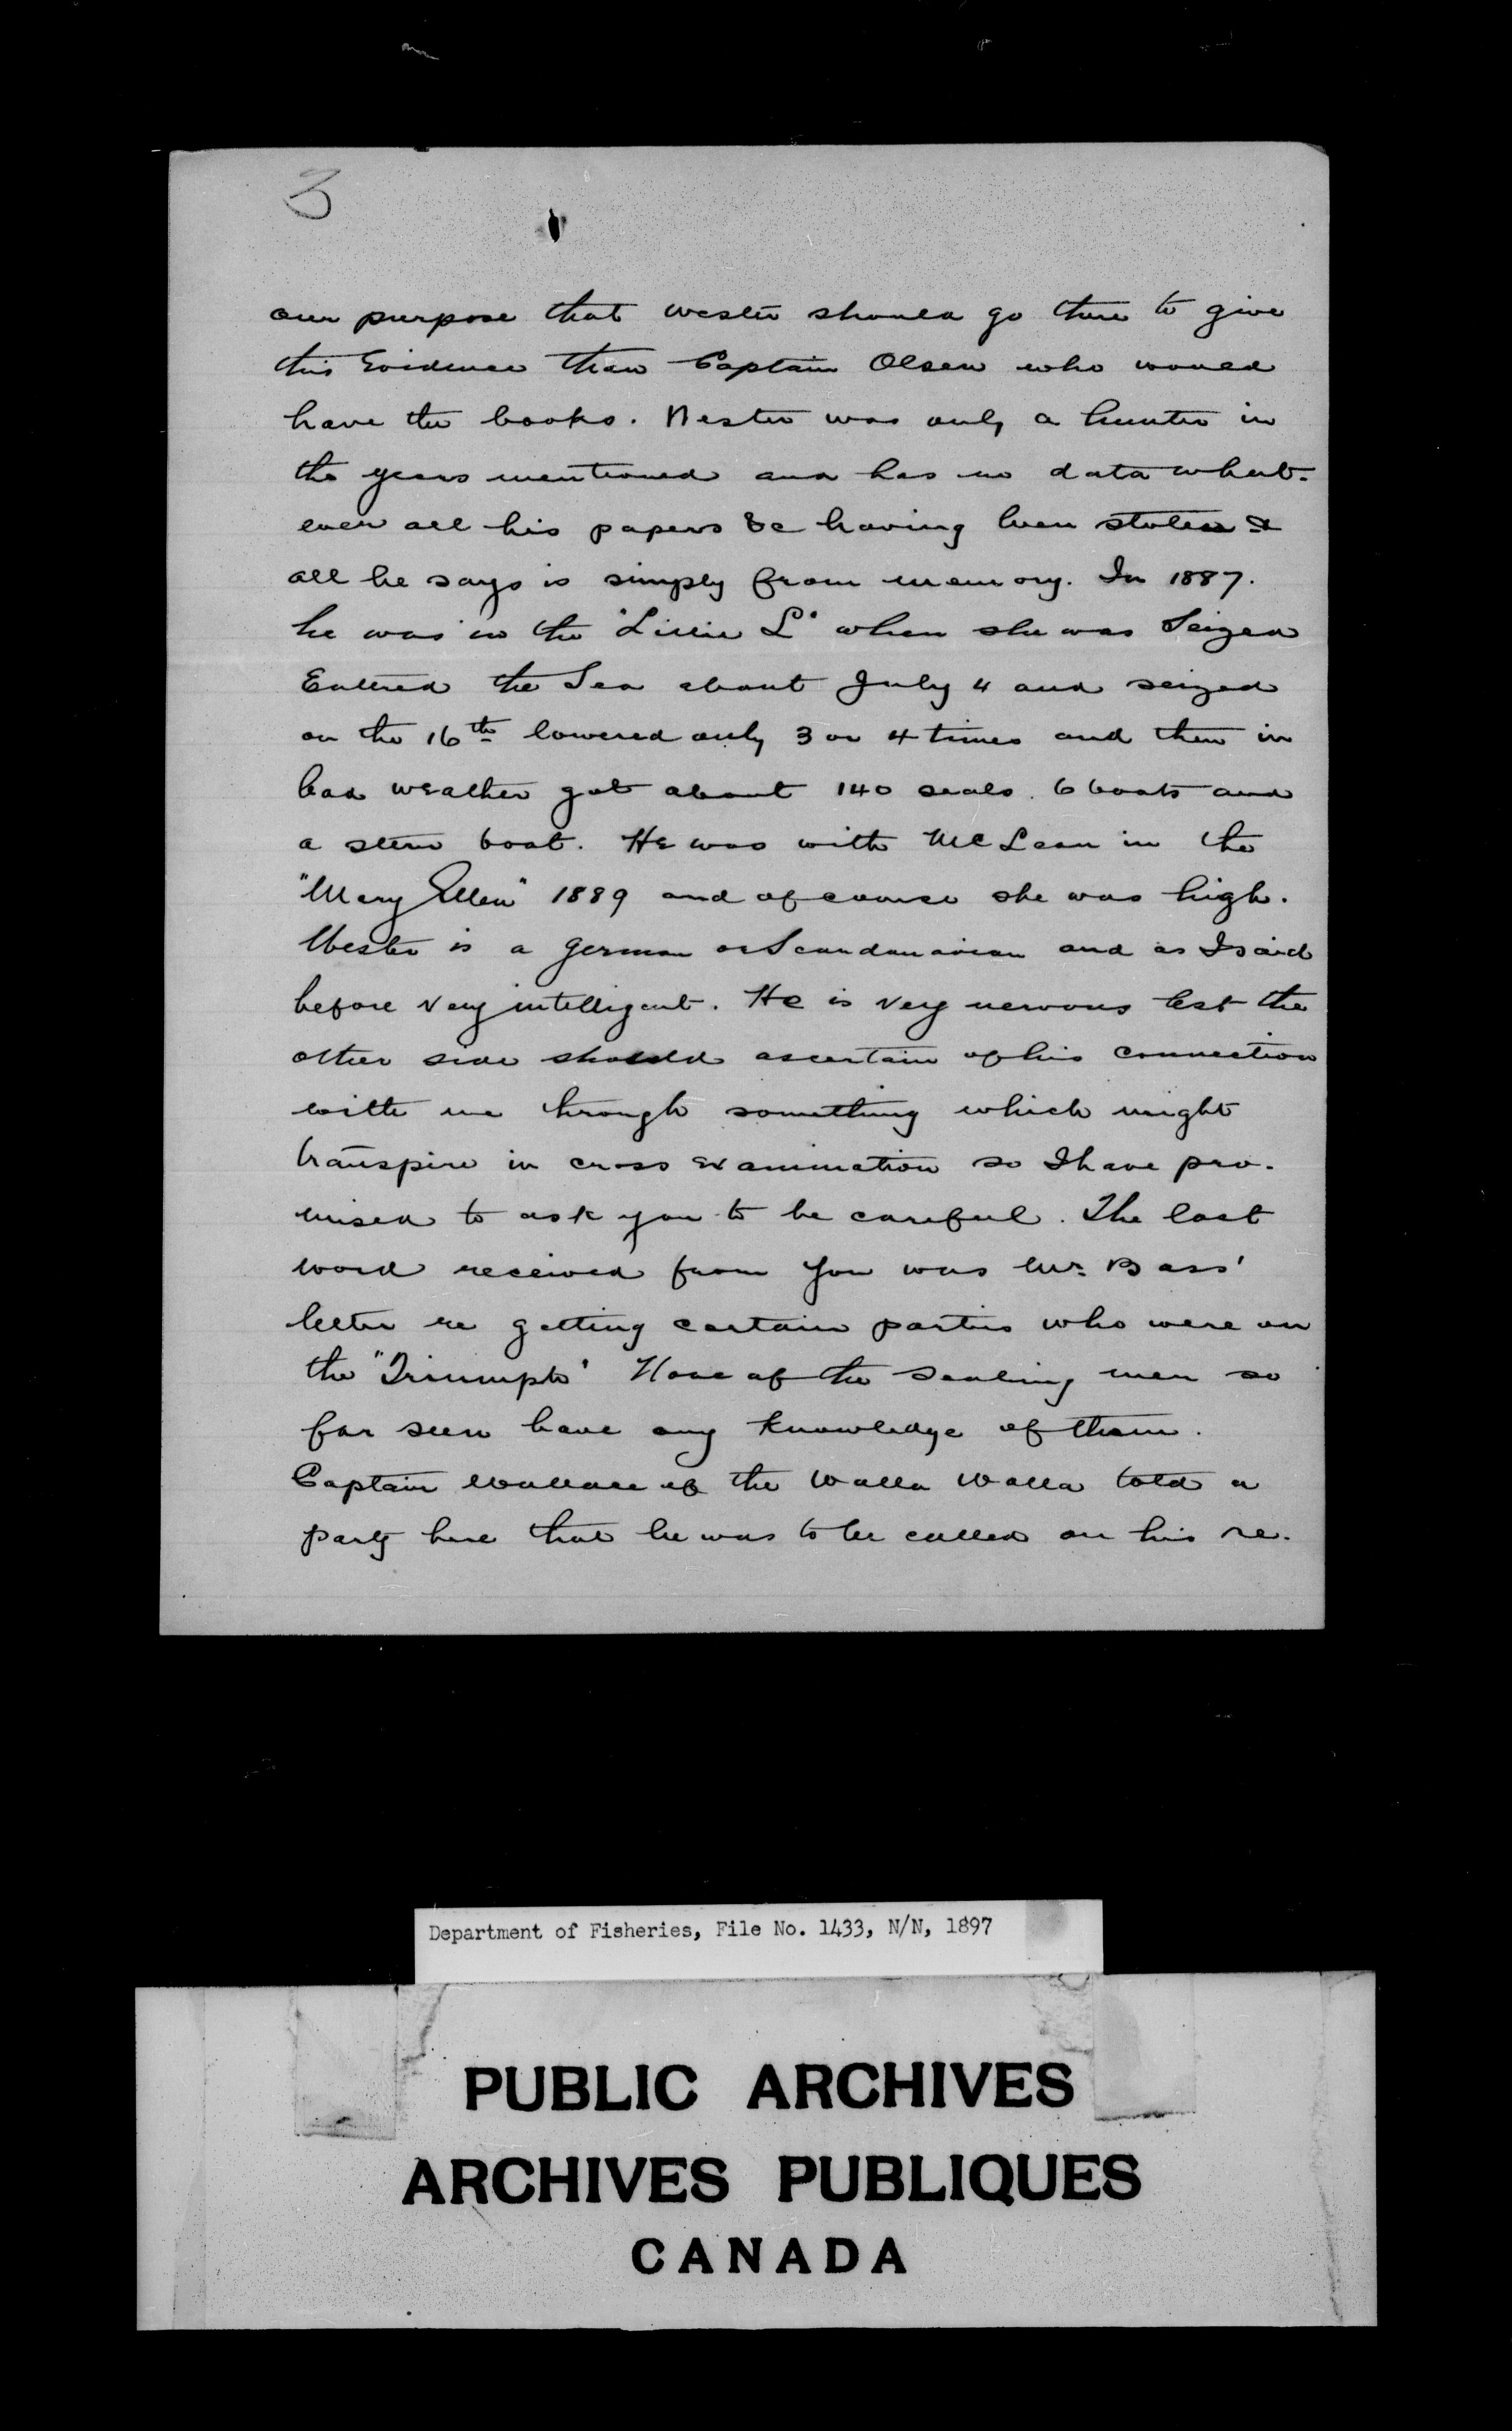 3
our purpose that Wester should go there to give
this Evidence than Captain Olsen who would
have the books. Wester was only a hunter in
the years mentioned and has no data what-
ever all his papers &c having been stolen &
all he says is simply from memory. In 1887.
he was in the "Lillie L" when she was Seized
Entered the Sea about July 4 and seized
on the 16th lowered only 3 or 4 times and then in
bad weather got about 140 seals. 6 boats and
a stern boat. He was with McLean in the
"Mary Ellen" 1889 and of course she was high.
Wester is a German or Scandanavian and as I said
before very intelligent. He is very nervous lest the
other side should ascertain of his connection
with me through something which might
transpire in cross examination so I have pro-
mised to ask you to be careful. The last
word received from you was Mr. Bass'
letter re getting certain parties who were on
the "Triumph" None of the sealing men so
far seen have any knowledge of them.
Captain Wallace of the Walla Walla told a
party here that he was to be called on his re-
Department of Fisheries, File No. 1433, N/N, 1897
PUBLIC ARCHIVES
ARCHIVES PUBLIQUES
CANADA